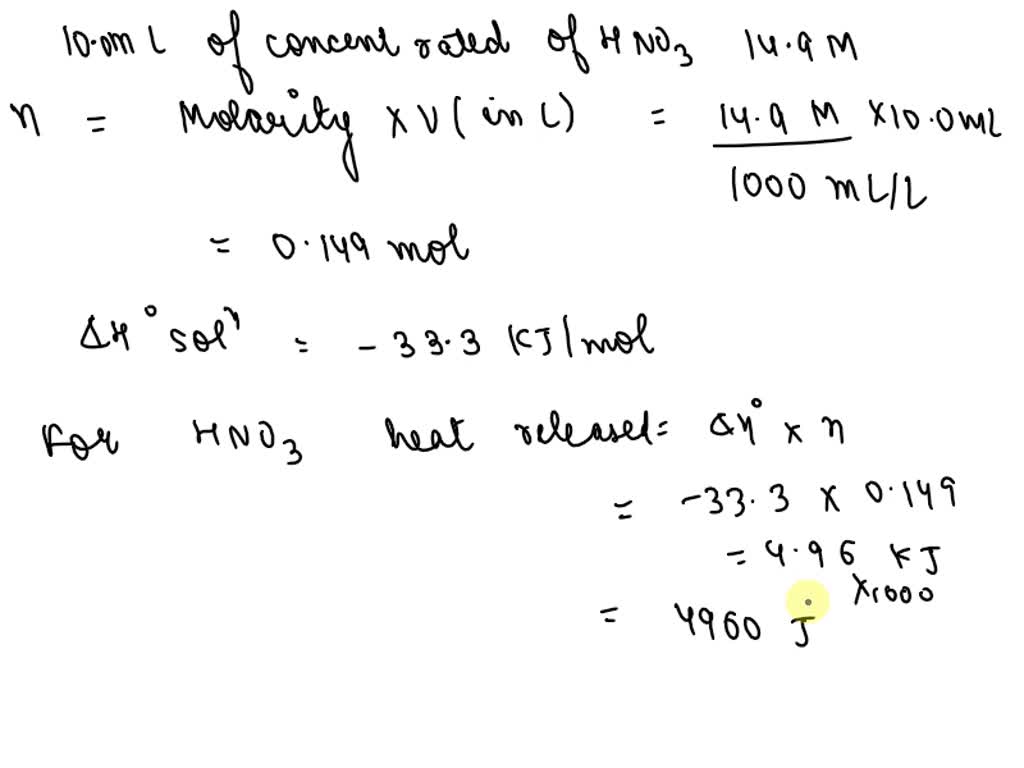 10.0mL of concent rated of HNO3 14.9 M
n = Molarity x V ( in L ) = 14.9 M x 10.0 mL
1000 mL/L
= 0.149 mol
ΔH° solⁿ = - 33.3 KJ/mol
For HNO3 heat released = ΔH° x n
= -33.3 x 0.149
= 4.96 KJ
x1000
= 4960 J